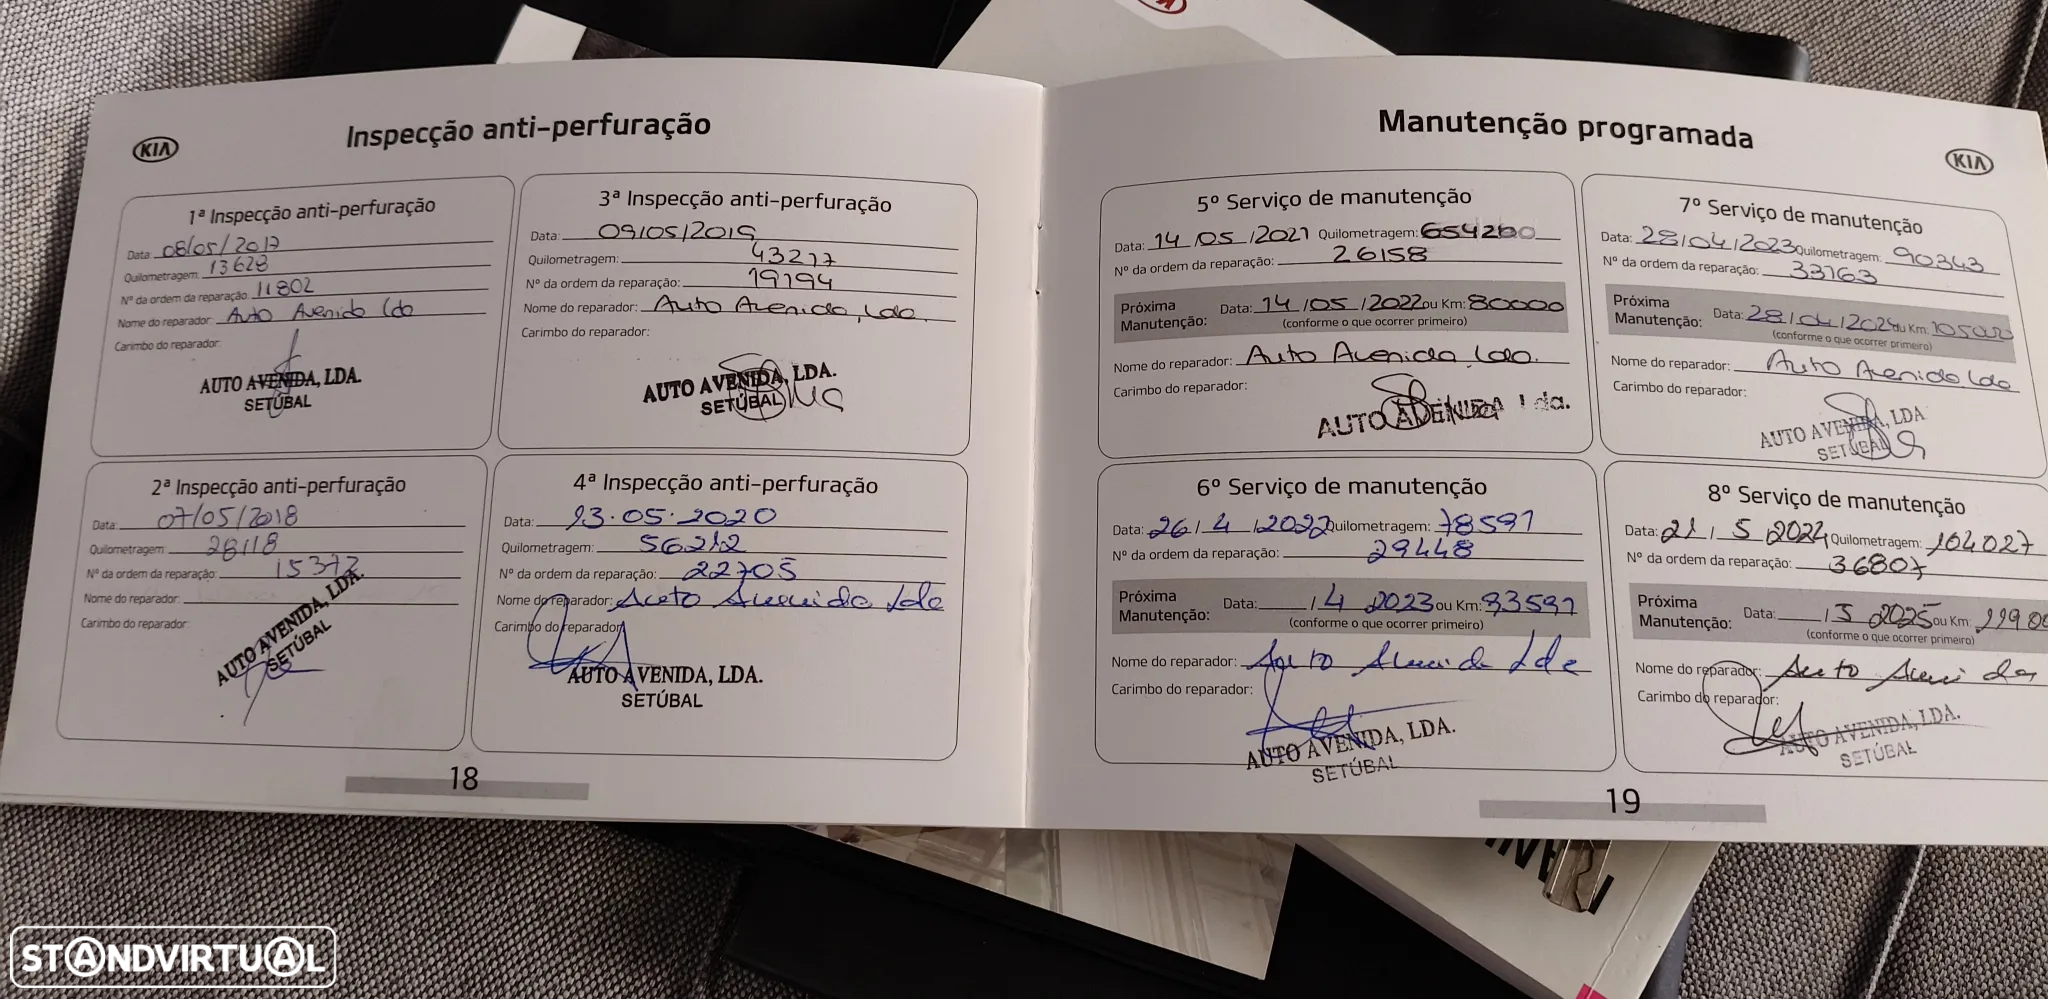 KIA
Inspecção anti-perfuração
1ª Inspecção anti-perfuração
Data: 08/05/2017
Quilometragem: 13628
Nº da ordem da reparação: 11802
Nome do reparador: Auto Avenida Lda
Carimbo do reparador:
AUTO AVENIDA, LDA.
SETÚBAL
2ª Inspecção anti-perfuração
Data: 07/05/2018
Quilometragem: 28118
Nº da ordem da reparação: 15373
Nome do reparador:
Carimbo do reparador:
AUTO AVENIDA, LDA.
SETÚBAL
3ª Inspecção anti-perfuração
Data: 09/05/2019
Quilometragem: 43217
Nº da ordem da reparação: 19194
Nome do reparador: Auto Avenida, Lda.
Carimbo do reparador:
AUTO AVENIDA, LDA.
SETÚBAL
4ª Inspecção anti-perfuração
Data: 13.05.2020
Quilometragem: 56212
Nº da ordem da reparação: 22705
Nome do reparador: Auto Avenida Lda
Carimbo do reparador:
AUTO AVENIDA, LDA.
SETÚBAL
18
Manutenção programada
KIA
5º Serviço de manutenção
Data: 14/05/2021 Quilometragem:
Nº da ordem da reparação: 26158
Próxima Manutenção: Data: 14/05/2022 ou Km: 80000
(conforme o que ocorrer primeiro)
Nome do reparador: Auto Avenida Lda.
Carimbo do reparador:
AUTO AVENIDA Lda.
6º Serviço de manutenção
Data: 26/4/2022 Quilometragem: 78591
Nº da ordem da reparação: 29448
Próxima Manutenção: Data: /4/2023 ou Km: 93591
(conforme o que ocorrer primeiro)
Nome do reparador: Auto Avenida Lda
Carimbo do reparador:
AUTO AVENIDA, LDA.
SETÚBAL
7º Serviço de manutenção
Data: 28/04/2023 Quilometragem: 90343
Nº da ordem da reparação: 33763
Próxima Manutenção: Data: 28/04/2024 ou Km: 105000
(conforme o que ocorrer primeiro)
Nome do reparador: Auto Avenida Lda
Carimbo do reparador:
AUTO AVENIDA, LDA
SETÚBAL
8º Serviço de manutenção
Data: 21/5/2024 Quilometragem: 104027
Nº da ordem da reparação: 36807
Próxima Manutenção: Data: /5/2025 ou Km: 11900
(conforme o que ocorrer primeiro)
Nome do reparador: Auto Avenida
Carimbo do reparador:
AUTO AVENIDA, LDA.
SETÚBAL
19
STANDVIRTUAL